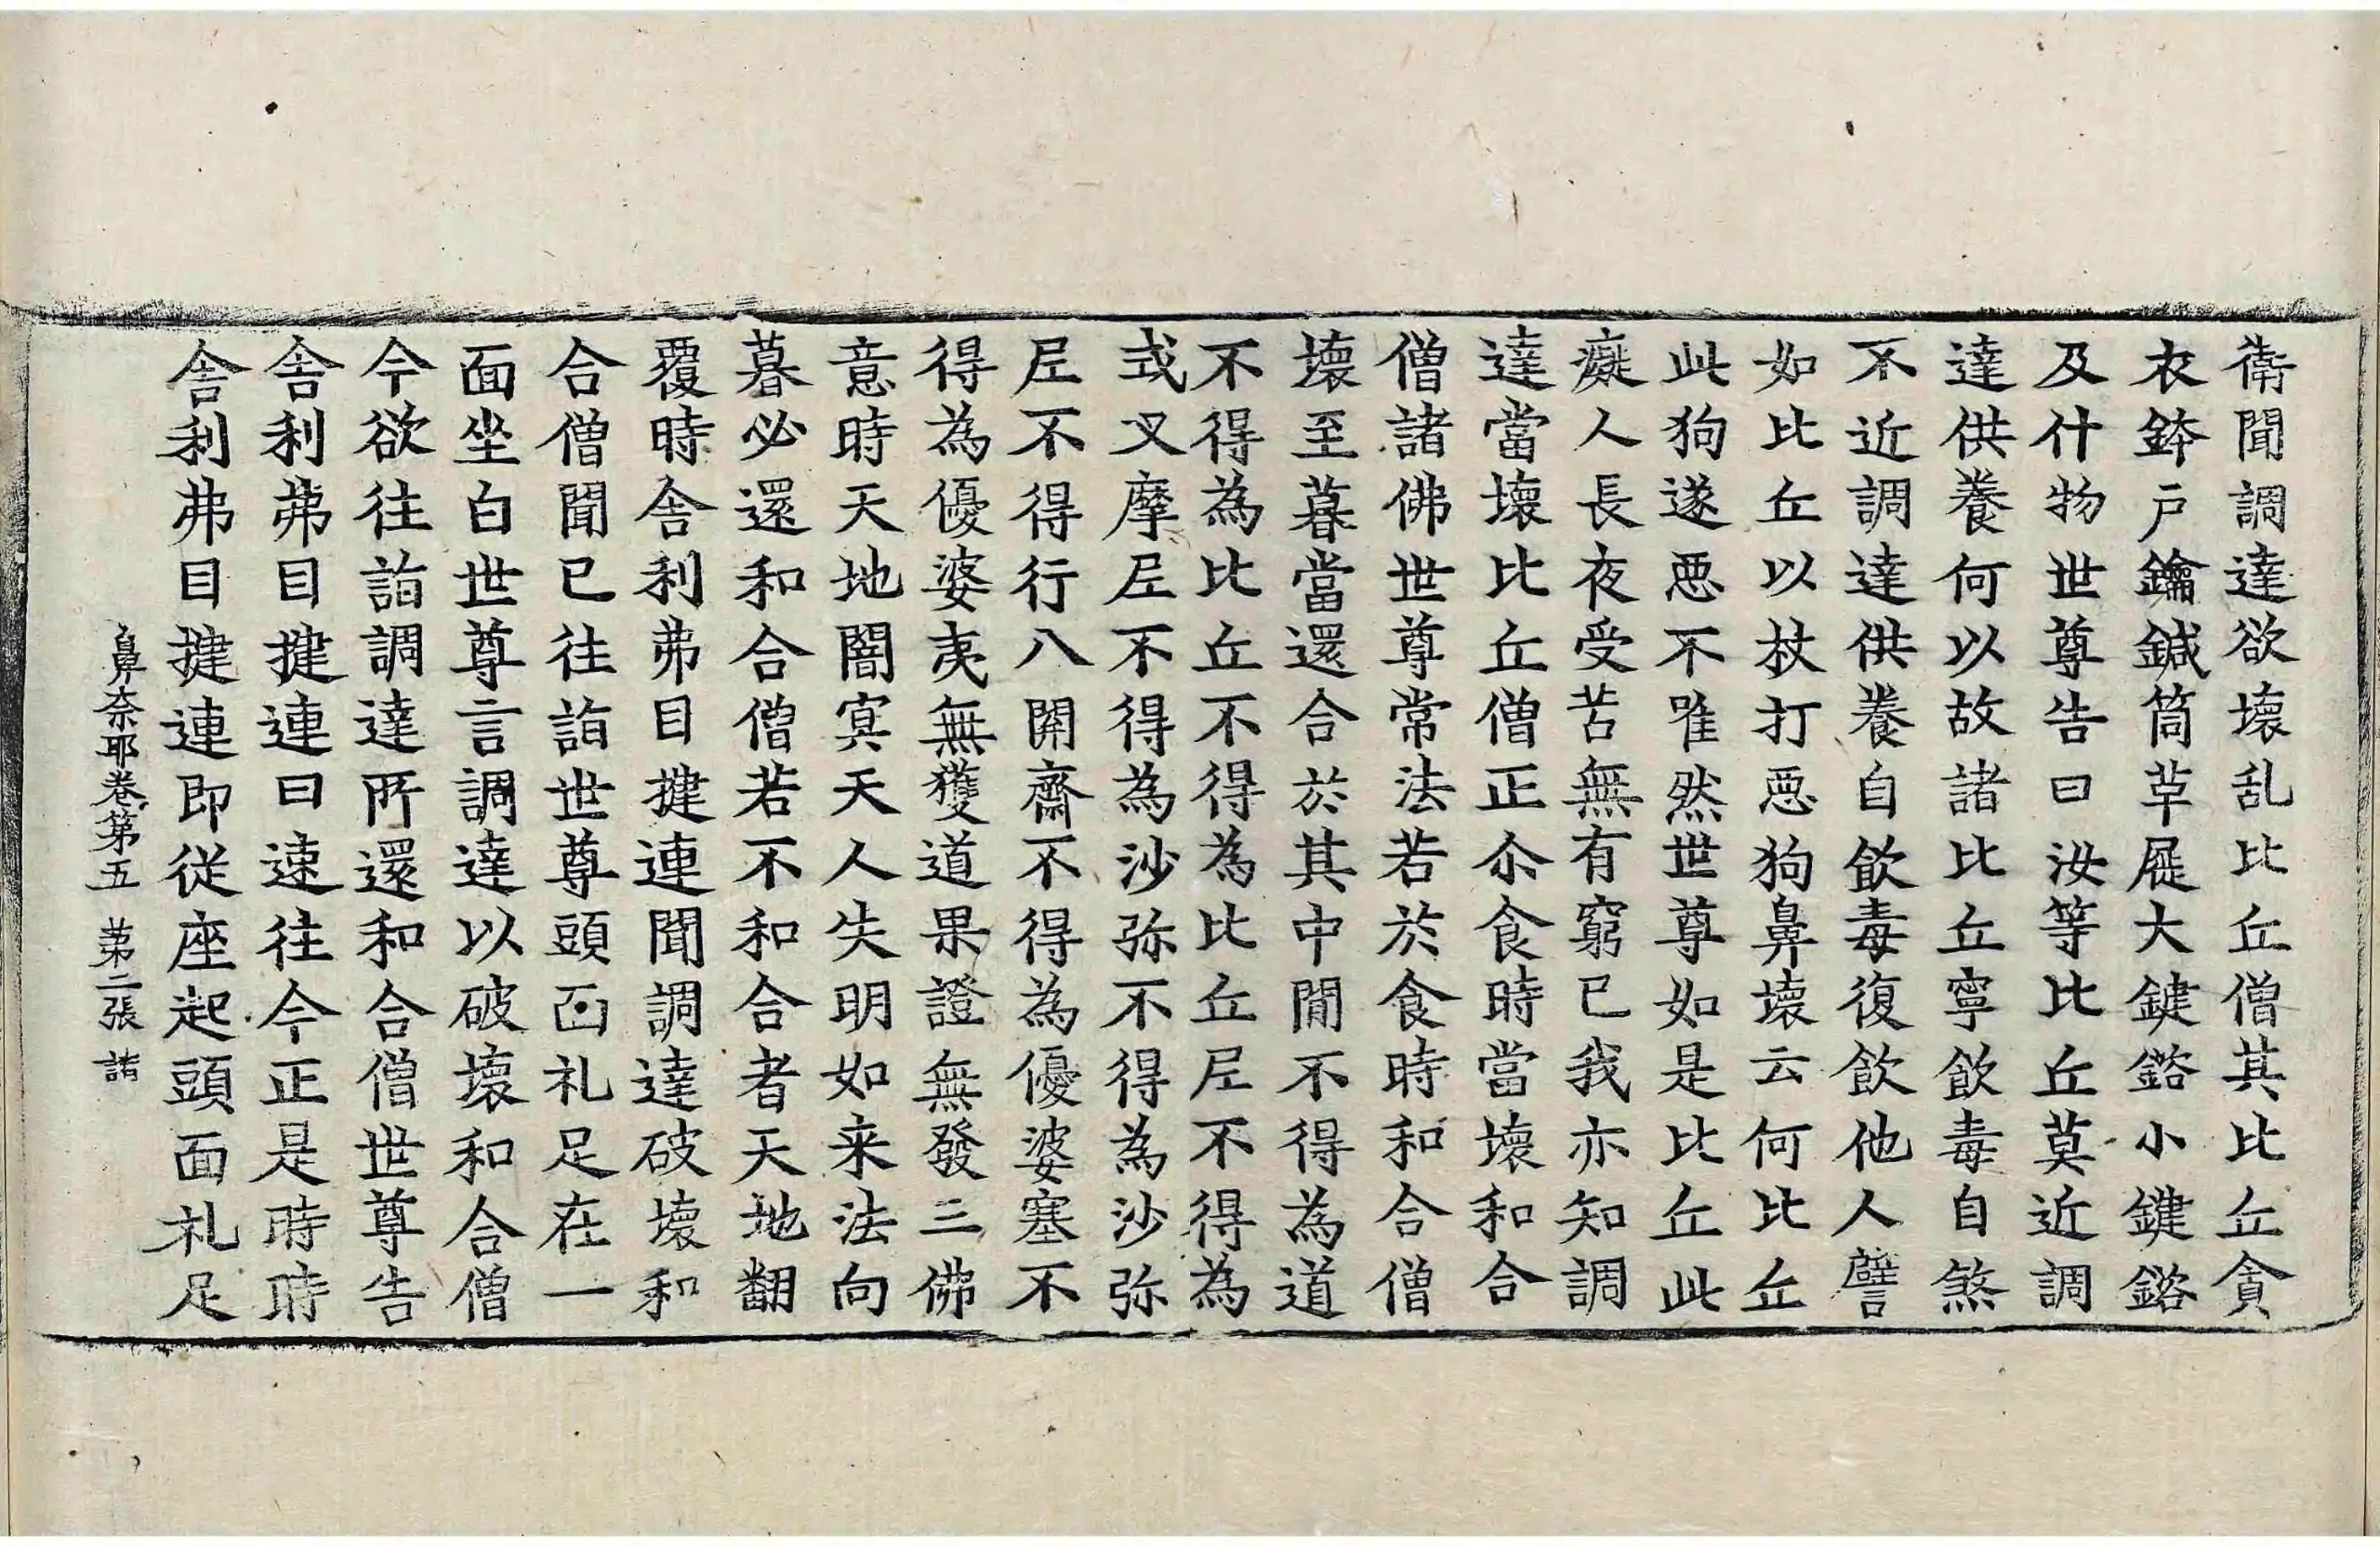 衛聞調達欲壞乱比丘僧其比丘貪
衣鉢戶鑰鍼筒草屣大鍵鎔小鍵鎔
及什物世尊告曰汝等比丘莫近調
達供養何以故諸比丘寧飲毒自煞
不近調達供養自飲毒復飲他人譬
如比丘以杖打惡狗鼻壞云何比丘
此狗遂惡不唯然世尊如是比丘此
癡人長夜受苦無有窮已我亦知調
達當壞比丘僧正尒食時當壞和合
僧諸佛世尊常法若於食時和合僧
壞至暮當還合於其中間不得為道
不得為比丘不得為比丘尼不得為
式叉摩尼不得為沙弥不得為沙弥
尼不得行八關齋不得為優婆塞不
得為優婆夷無獲道果證無發三佛
意時天地闇冥天人失明如来法向
暮必還和合僧若不和合者天地翻
覆時舍利弗目揵連聞調達破壞和
合僧聞已往詣世尊頭面礼足在一
面坐白世尊言調達以破壞和合僧
今欲往詣調達所還和合僧世尊告
舍利弗目揵連曰速往今正是時時
舍利弗目揵連即從座起頭面礼足
鼻奈耶卷第五 第二張 諸